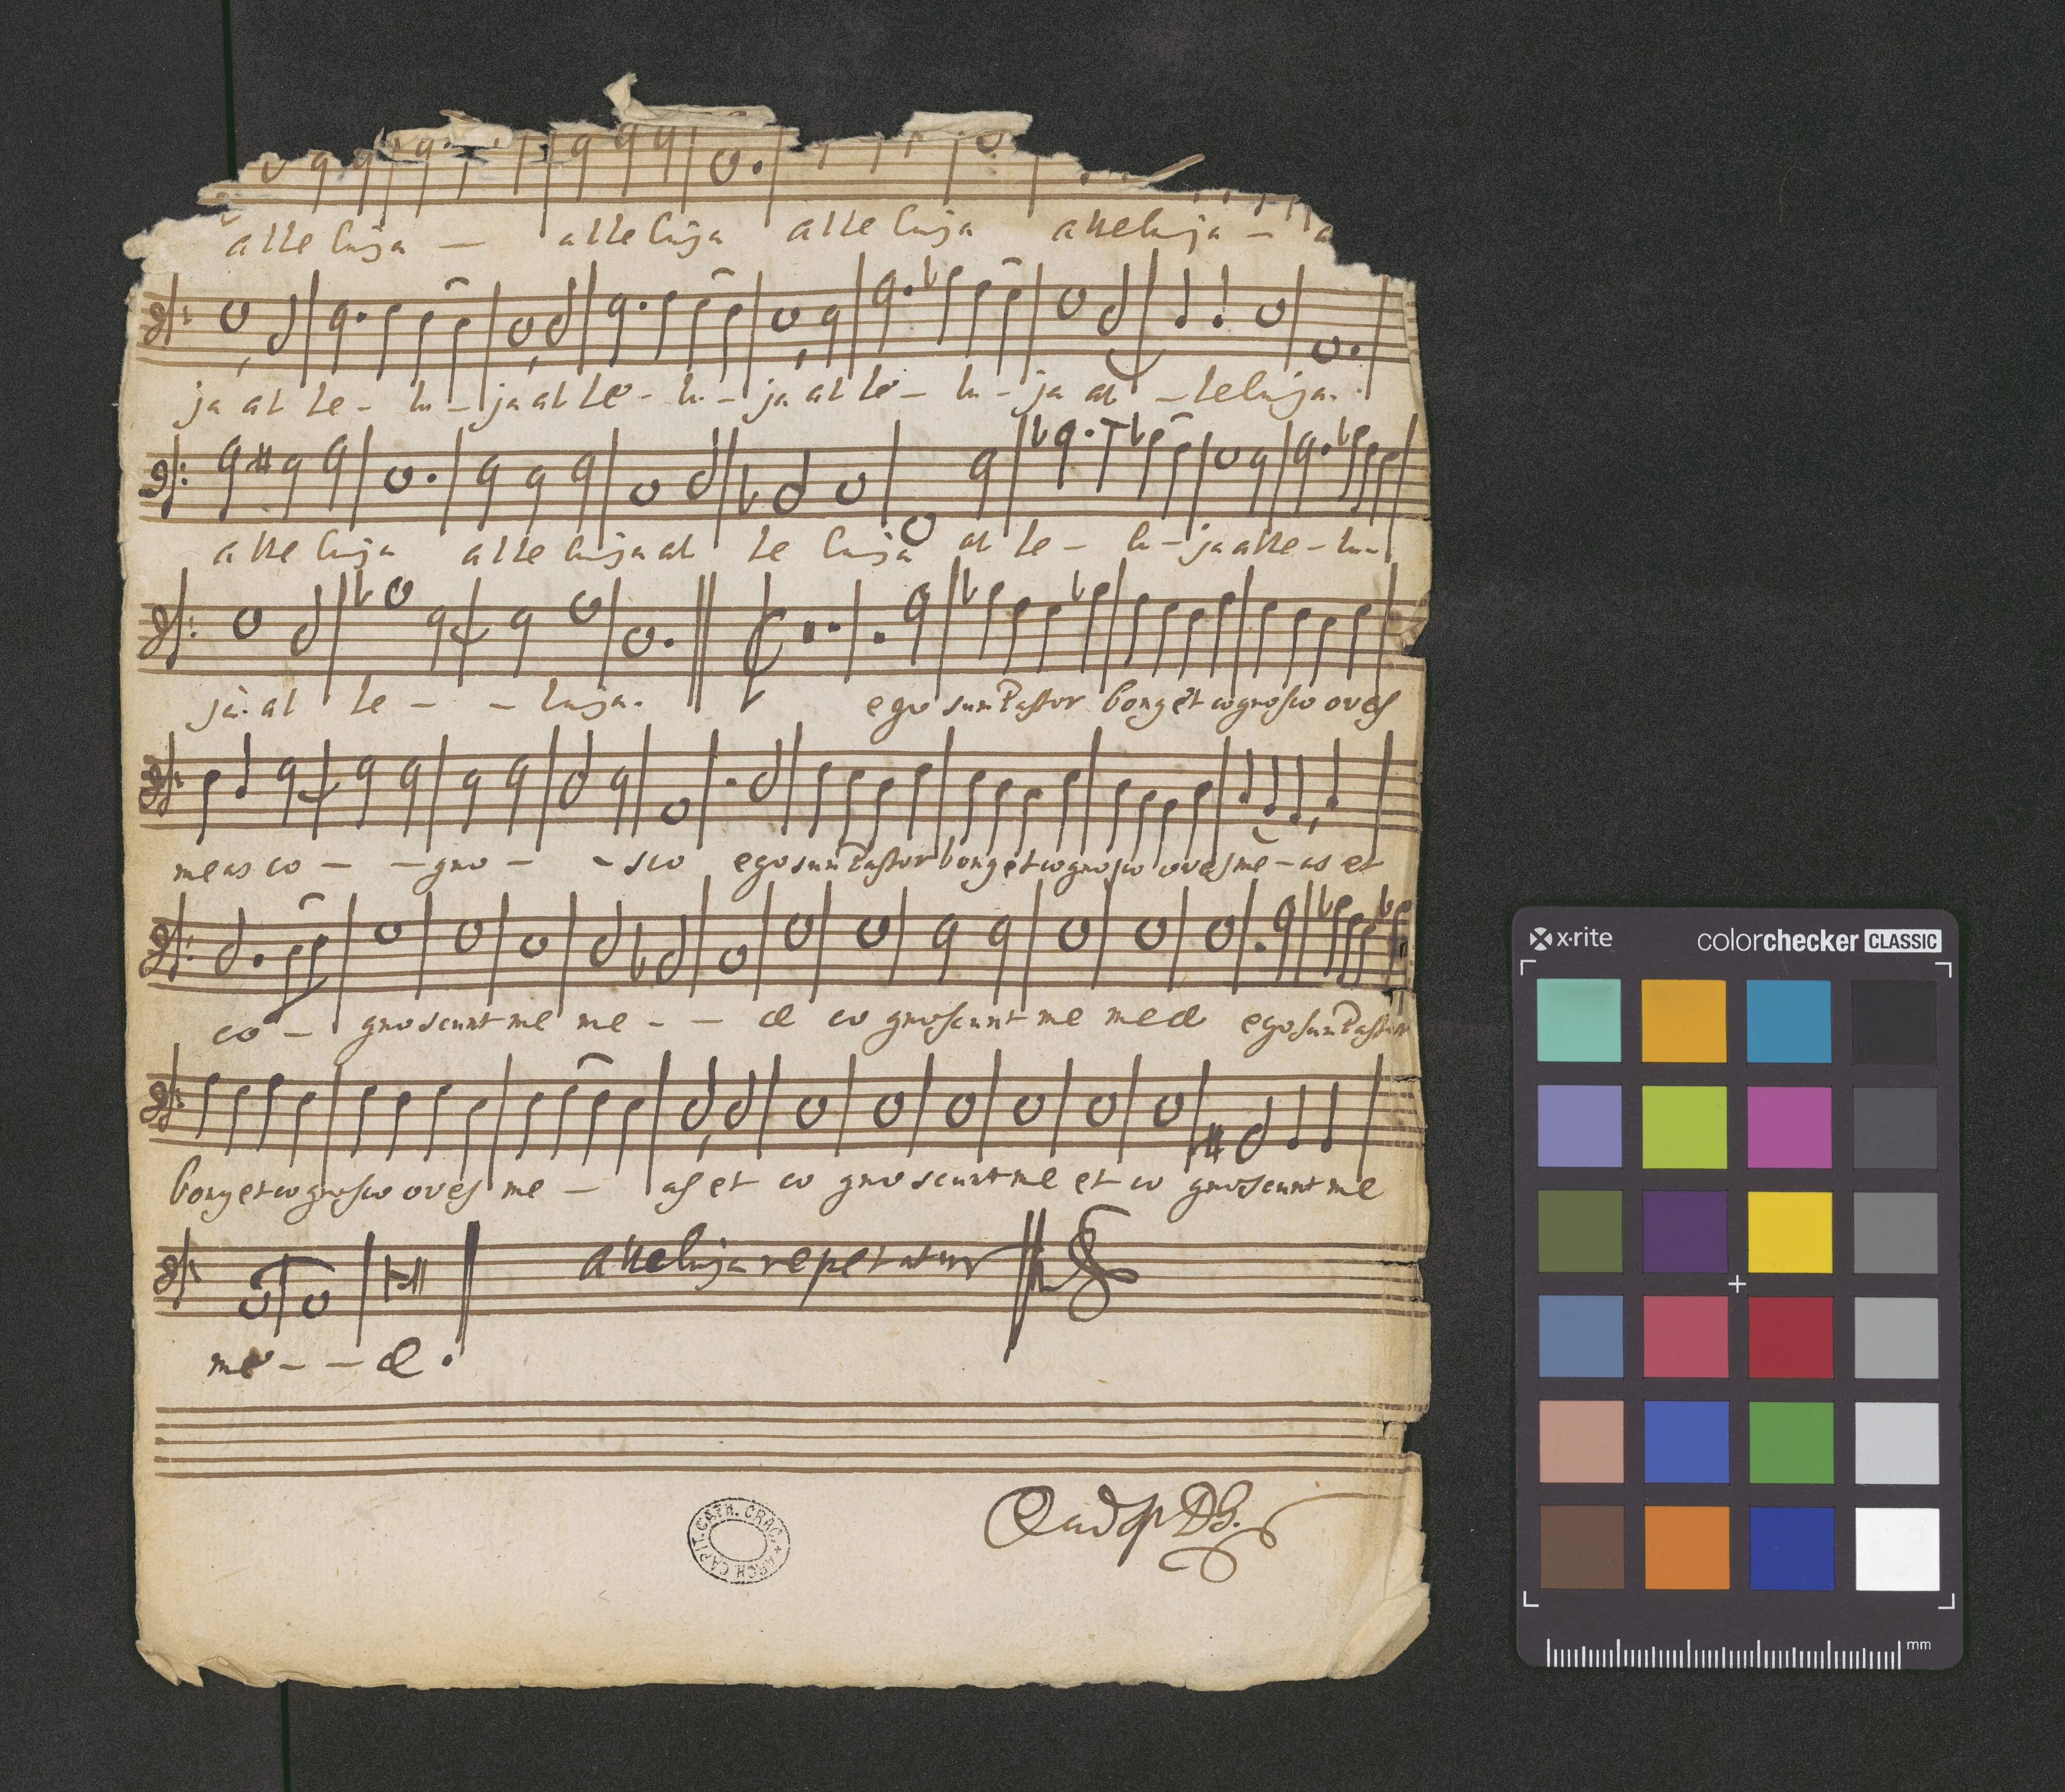 alleluja — alleluja alleluja alleluja — a
ja al le - lu - ja al le - lu - ja al le - lu - ja al - leluja.
alleluja alleluja al le luja al le - lu - ja alle - lu -
ja. al le - - luja. ego sum Pastor bonꝰ et cognosco oves
meas co - - gno - - sco ego sum Pastor bonꝰ et cognosco oves me - as et
co - gnoscunt me me - - æ co gnoscunt me meæ ego sum Pastor
bonꝰ et cognosco oves me - as et co gnoscunt me et co gnoscunt me
alleluja repetatur
me - - æ.
ARCH. CAPIT. CATH. CRAC.
x·rite colorchecker CLASSIC
mm